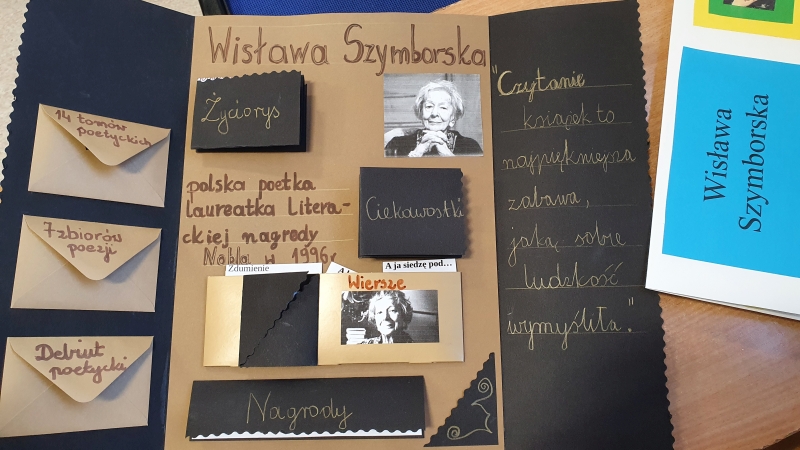 14 tomów
poetyckich
7 zbiorów
poezji
Debiut
poetycki
Wisława Szymborska
Życiorys
polska poetka
laureatka Litera-
ckiej nagrody
Nobla w 1996r
Ciekawostki
Zdumienie
A ja siedzę pod...
Wiersze
Nagrody
"Czytanie
książek to
najpiękniejsza
zabawa,
jaką sobie
ludzkość
wymyśliła."
Wisława
Szymborska